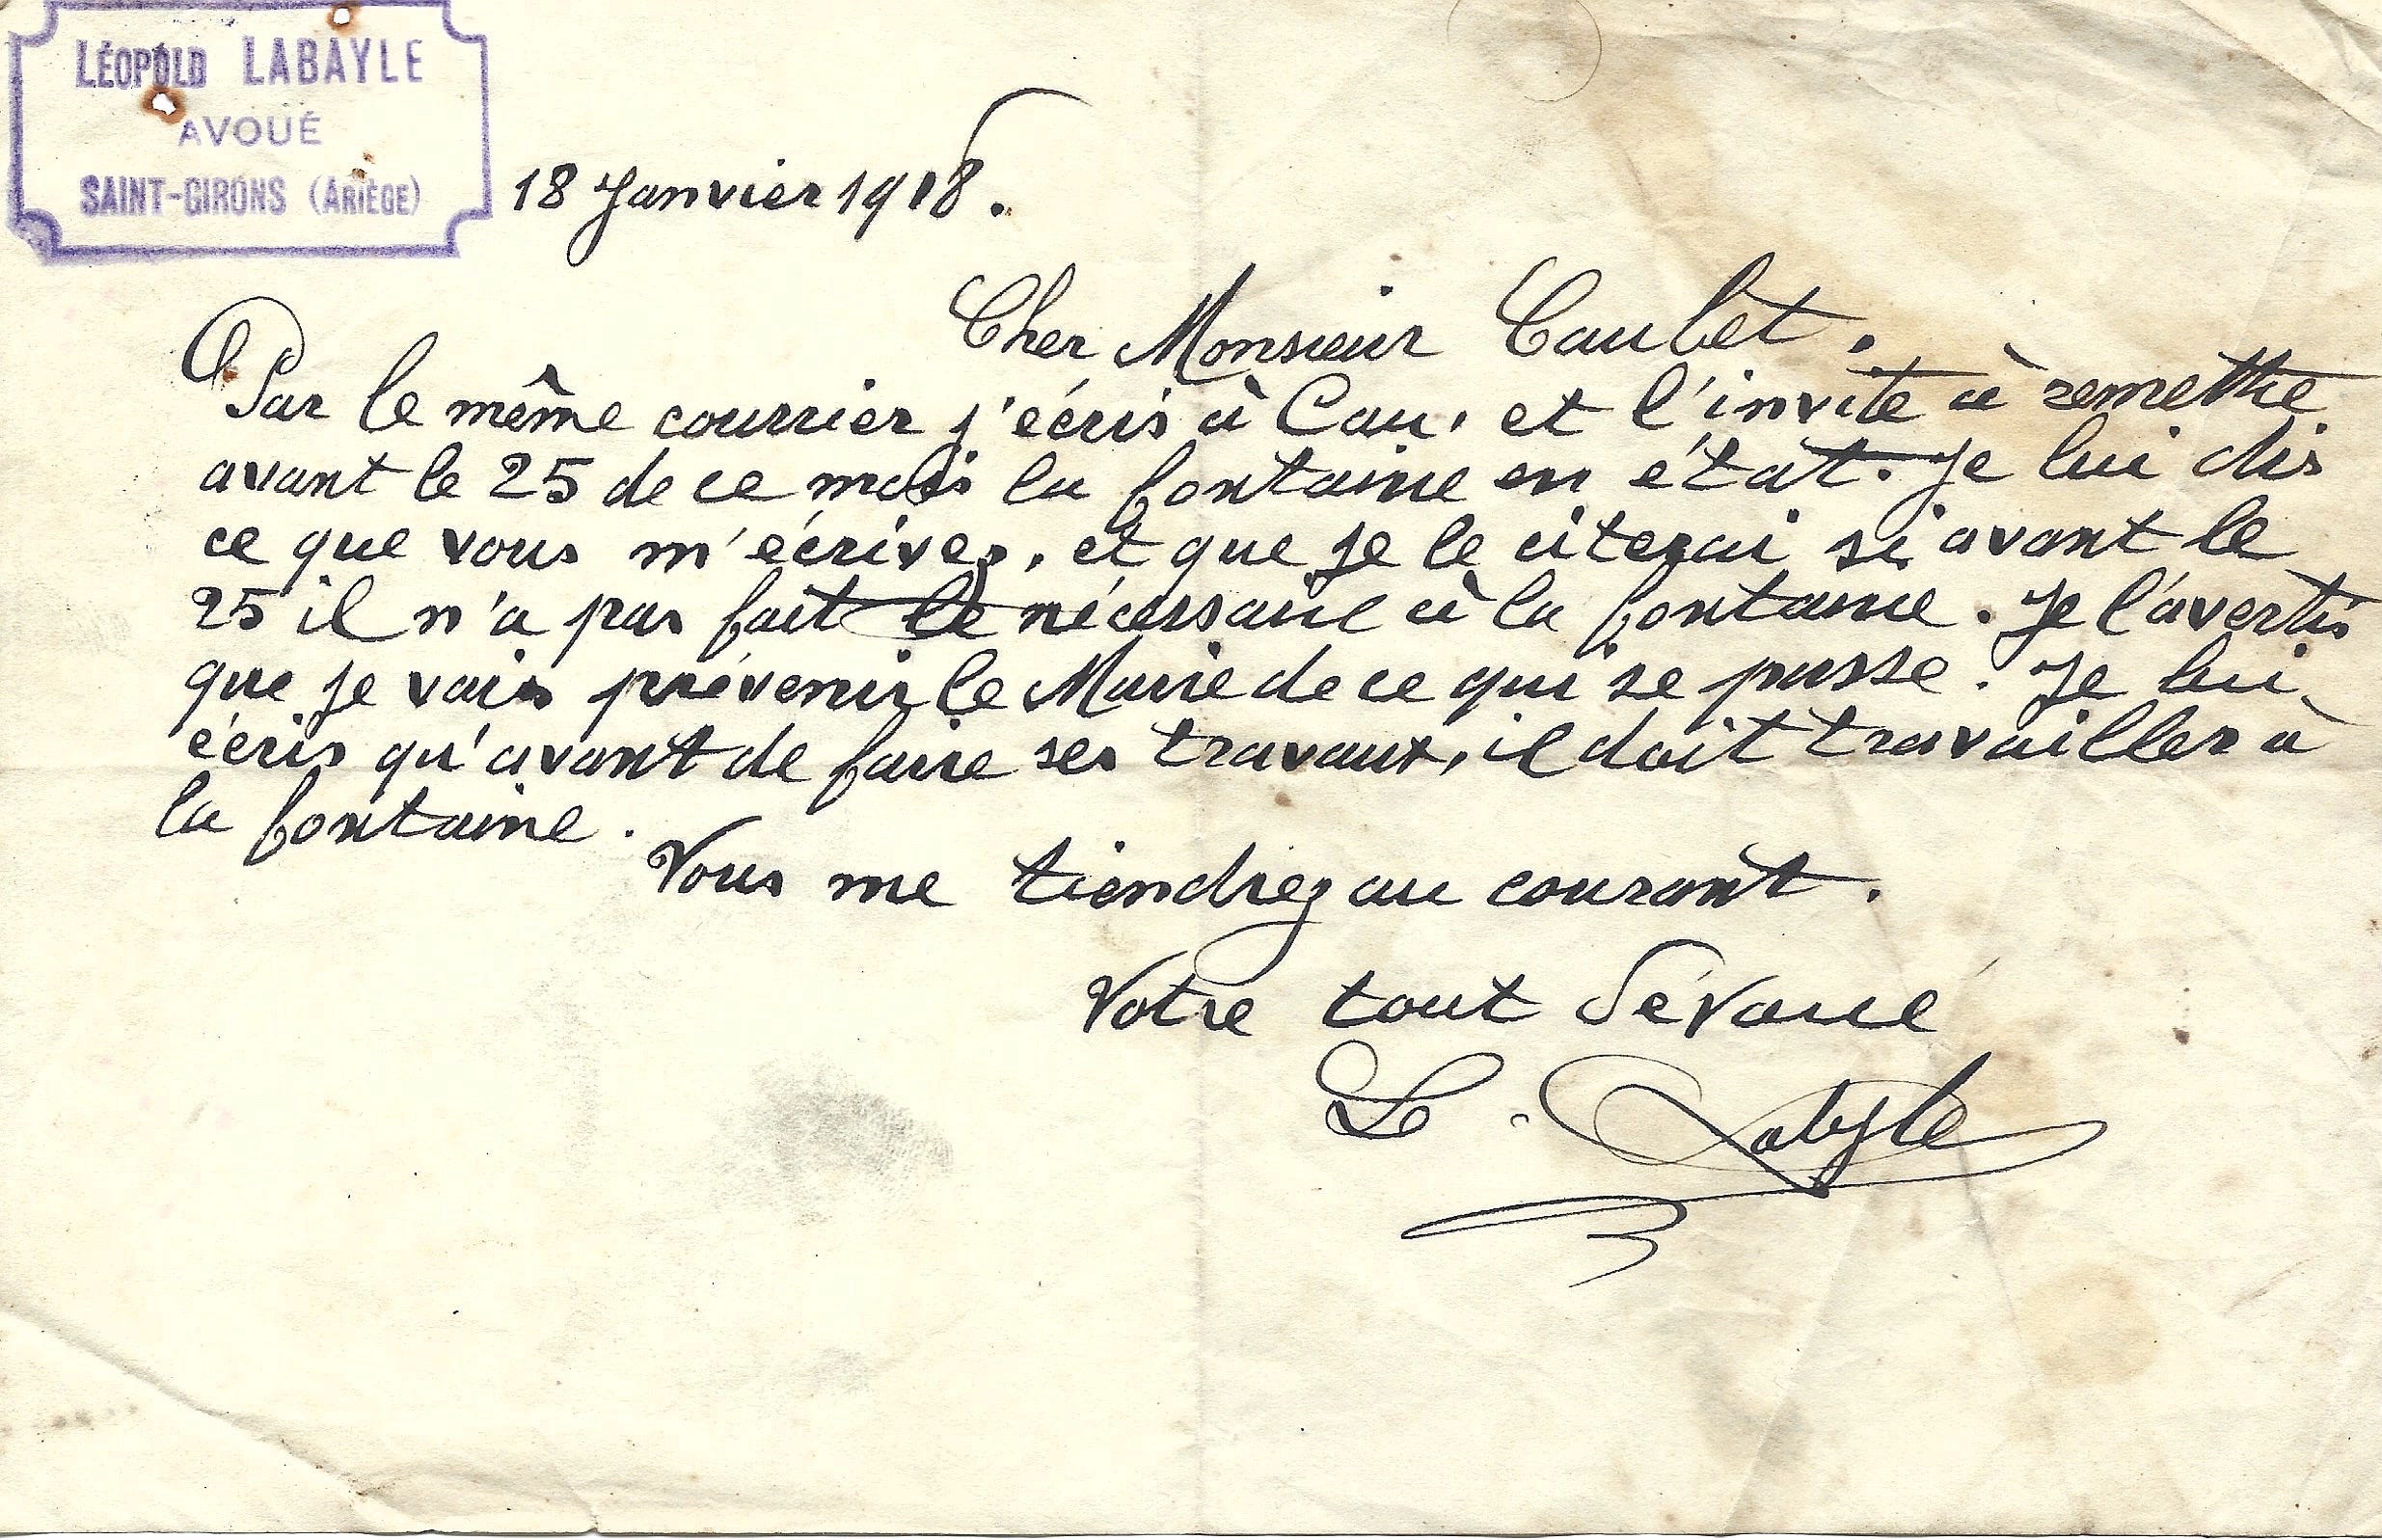 LÉOPOLD LABAYLE
AVOUÉ
SAINT-GIRONS (ARIÈGE)
18 Janvier 1918.
Cher Monsieur Caubet.
Par le même courrier j'écris à Cau, et l'invite à remettre
avant le 25 de ce mois la fontaine en état. Je lui dis
ce que vous m'écrives, et que je le citerai si avant le
25 il n'a pas fait le nécessaire à la fontaine. Je l'avertis
que je vais prévenir le Maire de ce qui se passe. Je lui
écris qu'avant de faire ses travaux, il doit travailler à
la fontaine.
Vous me tiendrez au courant.
Votre tout dévoué
L. Labayle